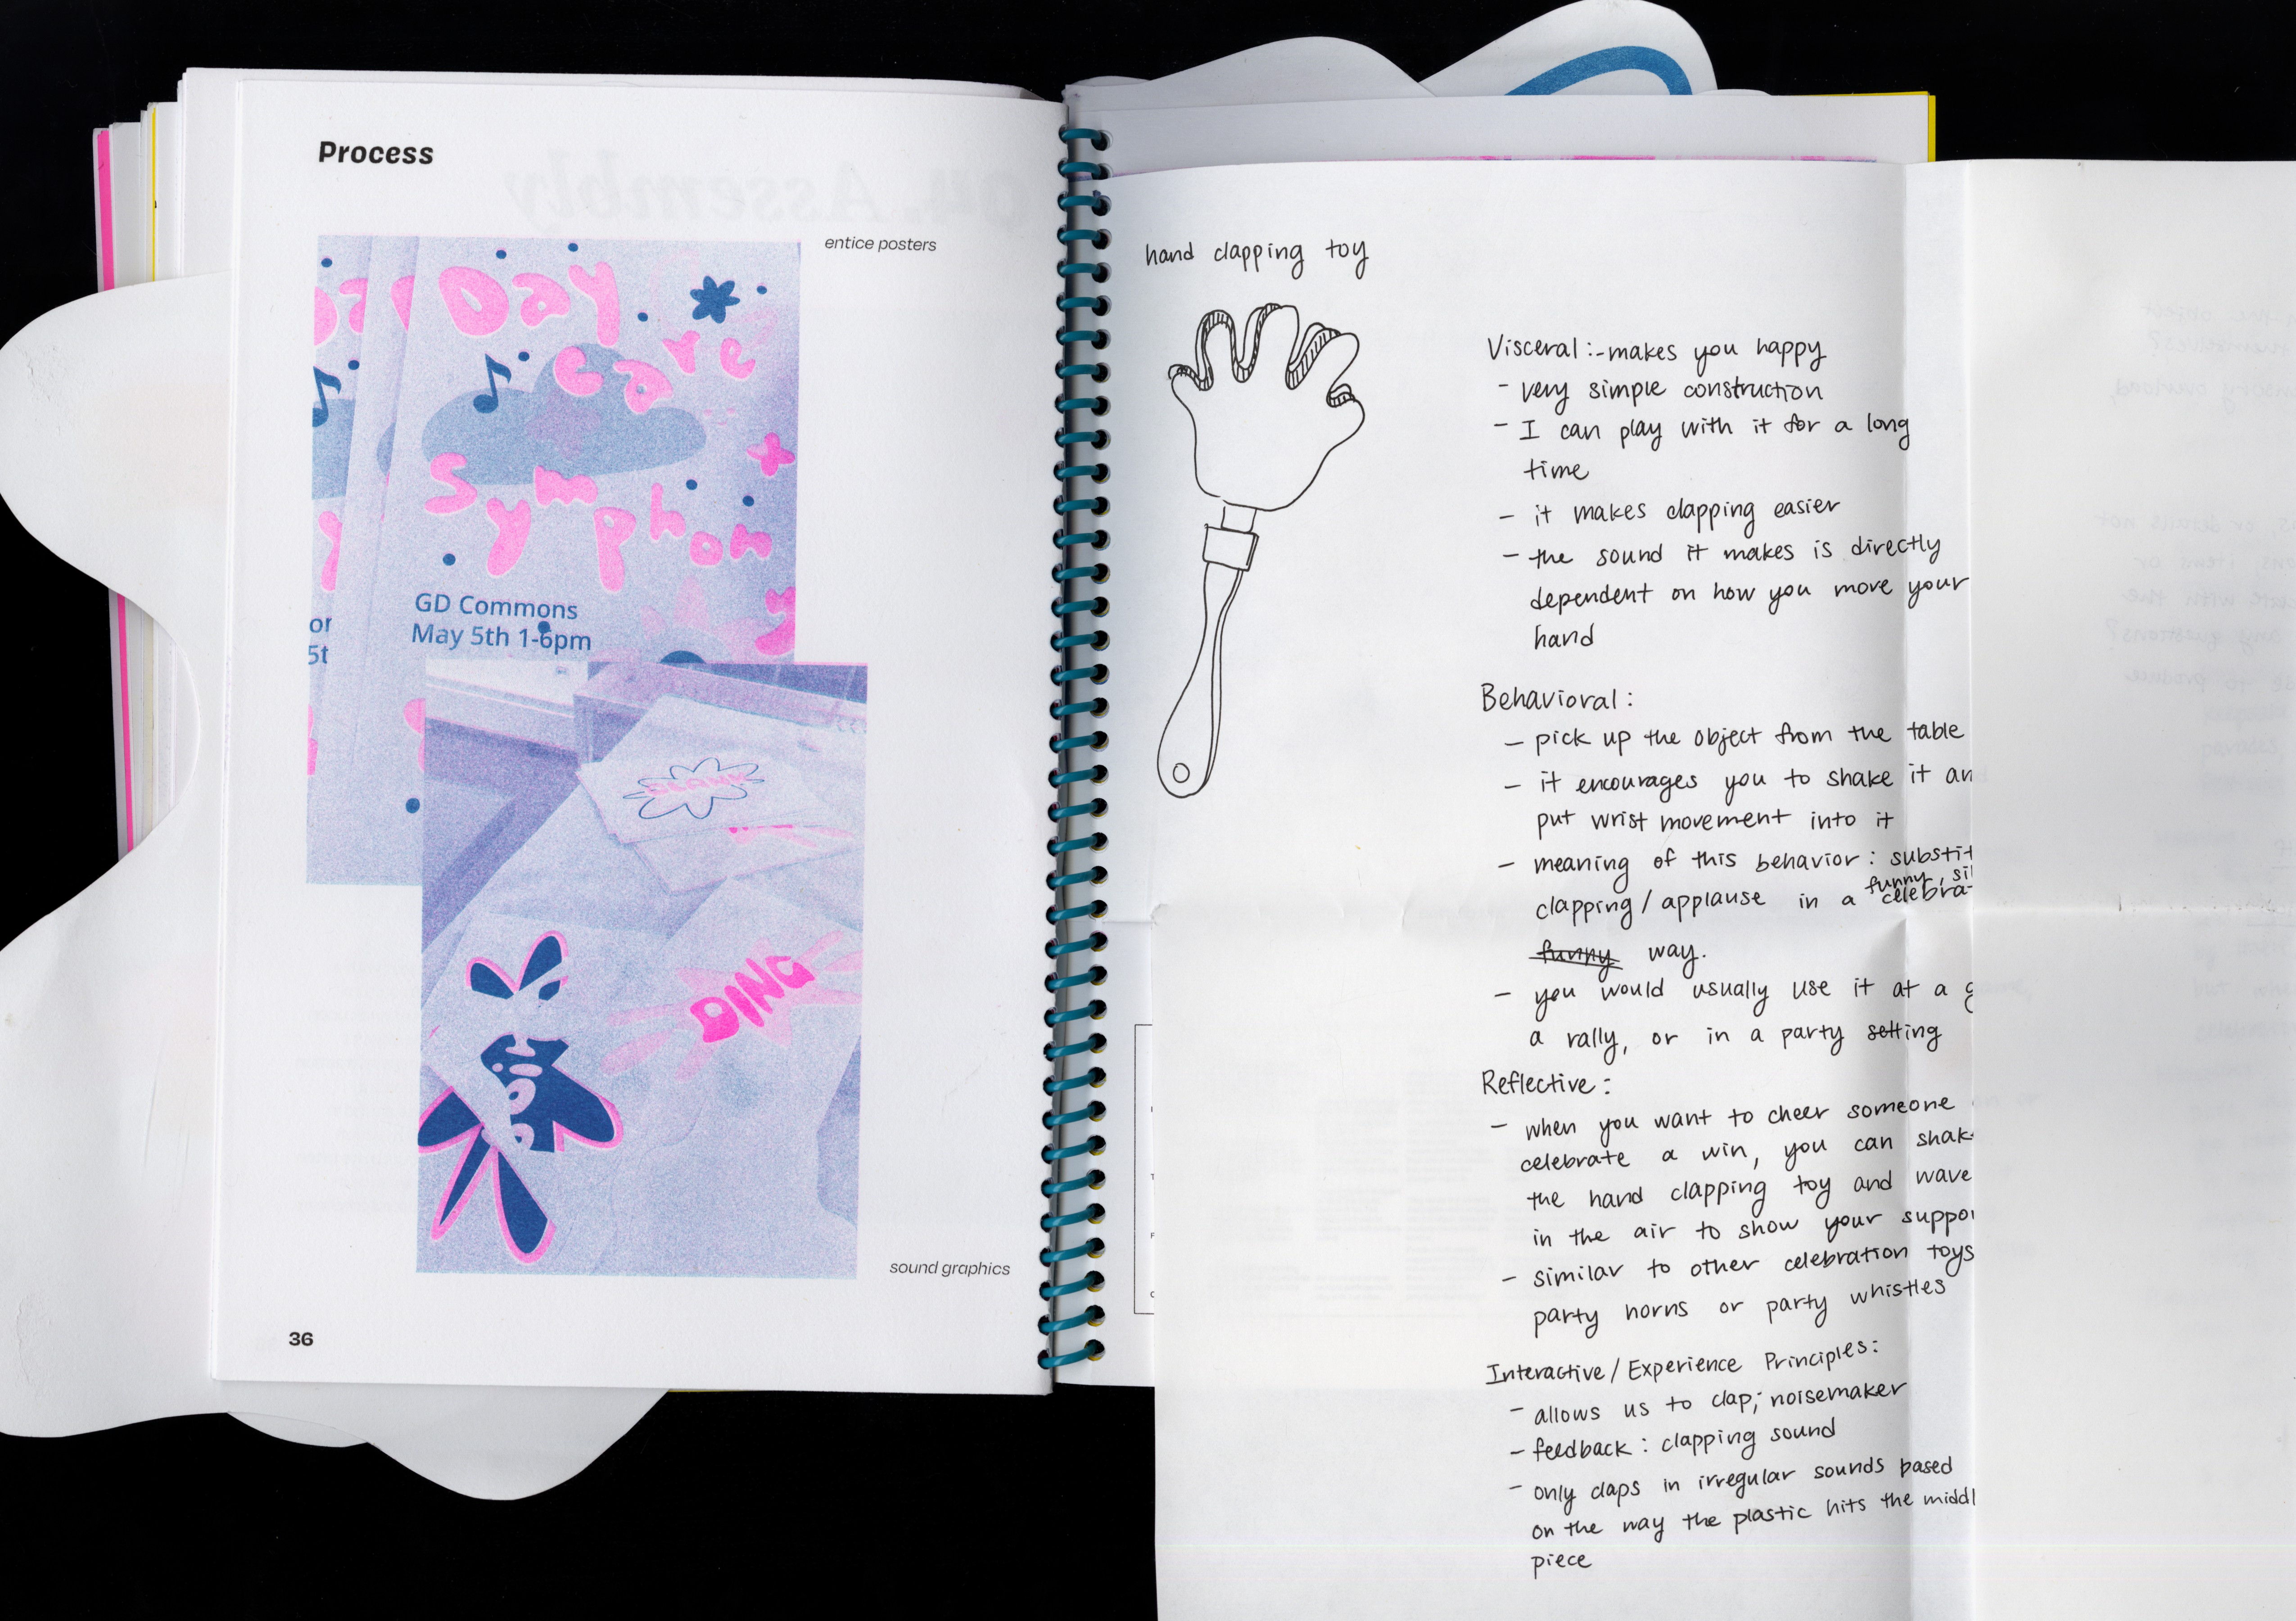 Process
entice posters
Day
care
Symphon
GD Commons
May 5th 1-6pm
or
5t
DING
sound graphics
36
hand clapping toy
Visceral:- makes you happy
- very simple construction
- I can play with it for a long
time
- it makes clapping easier
- the sound it makes is directly
dependent on how you move your
hand
Behavioral:
- pick up the object from the table
- it encourages you to shake it an
put wrist movement into it
- meaning of this behavior: substit
funny, sil
clapping/applause in a celebra-
funny way.
- you would usually use it at a g
a rally, or in a party setting
Reflective:
- when you want to cheer someone
celebrate a win, you can shak
the hand clapping toy and wave
in the air to show your suppor
- similar to other celebration toys
party horns or party whistles
Interactive/Experience Principles:
- allows us to clap; noisemaker
- feedback: clapping sound
- only claps in irregular sounds based
on the way the plastic hits the middl
piece